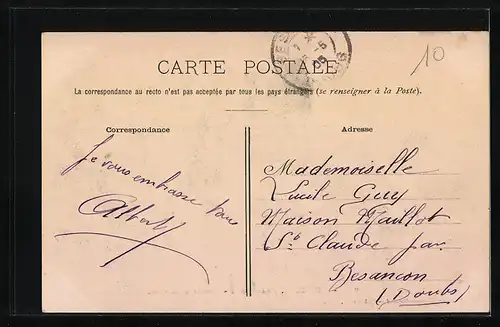 10
CARTE POSTALE
La correspondance au recto n'est pas acceptée par tous les pays étrangers (se renseigner à la Poste).
Correspondance
Adresse
Je vous embrasse tous
Albert
Mademoiselle
Lucile Guy
Maison Maillot
St Claude par
Besancon
(Doubs)